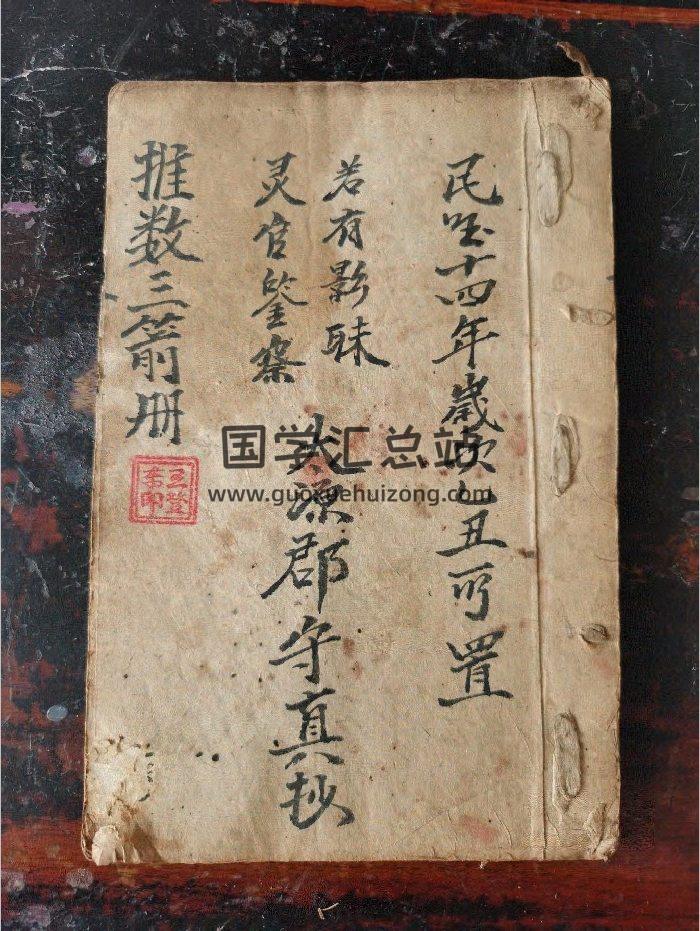 民国十四年歲次乙丑所置
若有影昧
灵官鉴察
太源郡守真抄
推数三箭册
国学汇总站
www.guoxuehuizong.com